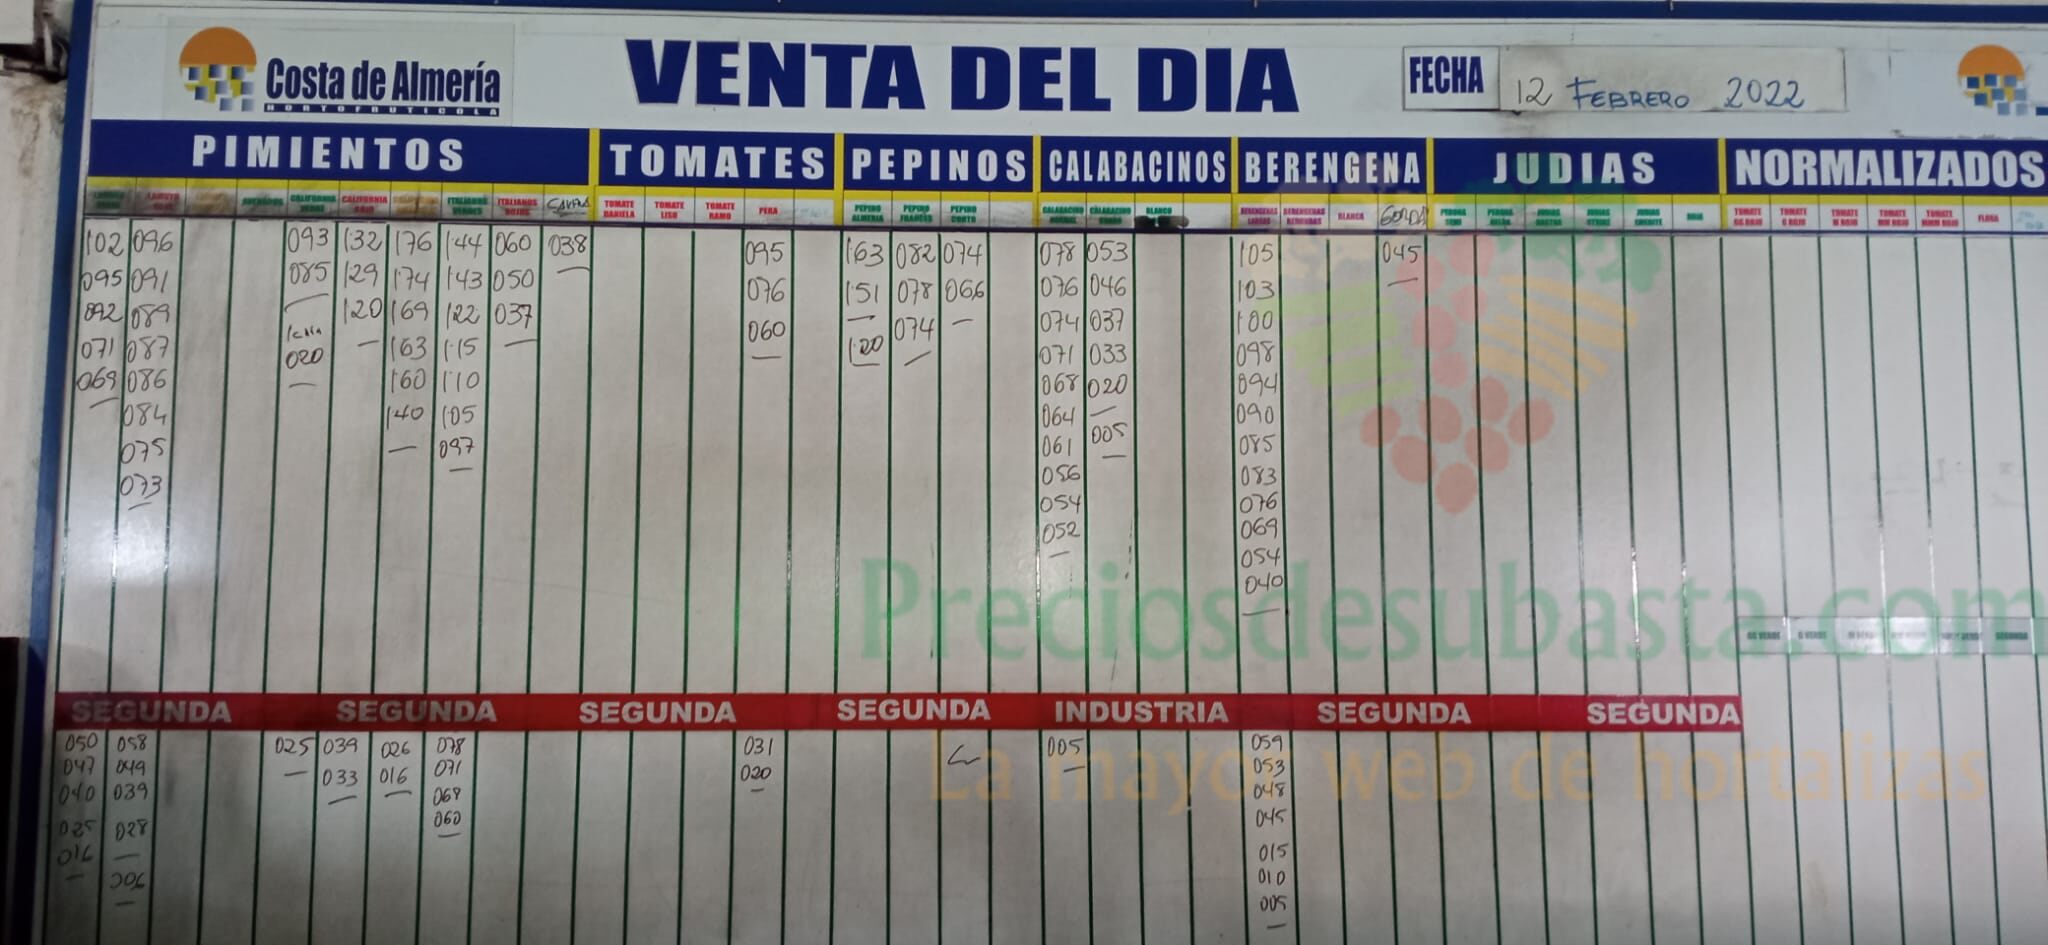 Costa de Almería
HORTOFRUTICOLA
VENTA DEL DIA
FECHA 12 FEBRERO 2022
PIMIENTOS TOMATES PEPINOS CALABACINOS BERENGENA JUDIAS NORMALIZADOS
CALIFORNIA CALIFORNIA ITALIANOS ITALIANOS TOMATE DANIELA TOMATE LISO TOMATE RAMO PERA PEPINO ALMERIA PEPINO FRANCES PEPINO CORTO BLANCO BLANCA GORDA FLORA
102 096 093 132 176 144 060 038 095 163 082 074 078 053 105 045
095 091 085 129 174 143 050 076 151 078 066 076 046 103
092 089 120 169 122 037 060 074 074 037 100
071 087 020 163 115 120 071 033 098
069 086 160 110 068 020 094
084 140 105 064 005 090
075 097 061 085
073 056 083
054 076
052 069
054
040
Preciosdesubasta.com
La mayor web de hortalizas
SEGUNDA SEGUNDA SEGUNDA SEGUNDA INDUSTRIA SEGUNDA SEGUNDA
050 058 025 039 026 078 031 005 059
047 049 033 016 071 020 053
040 039 068 048
025 028 060 045
016 006 015
010
005